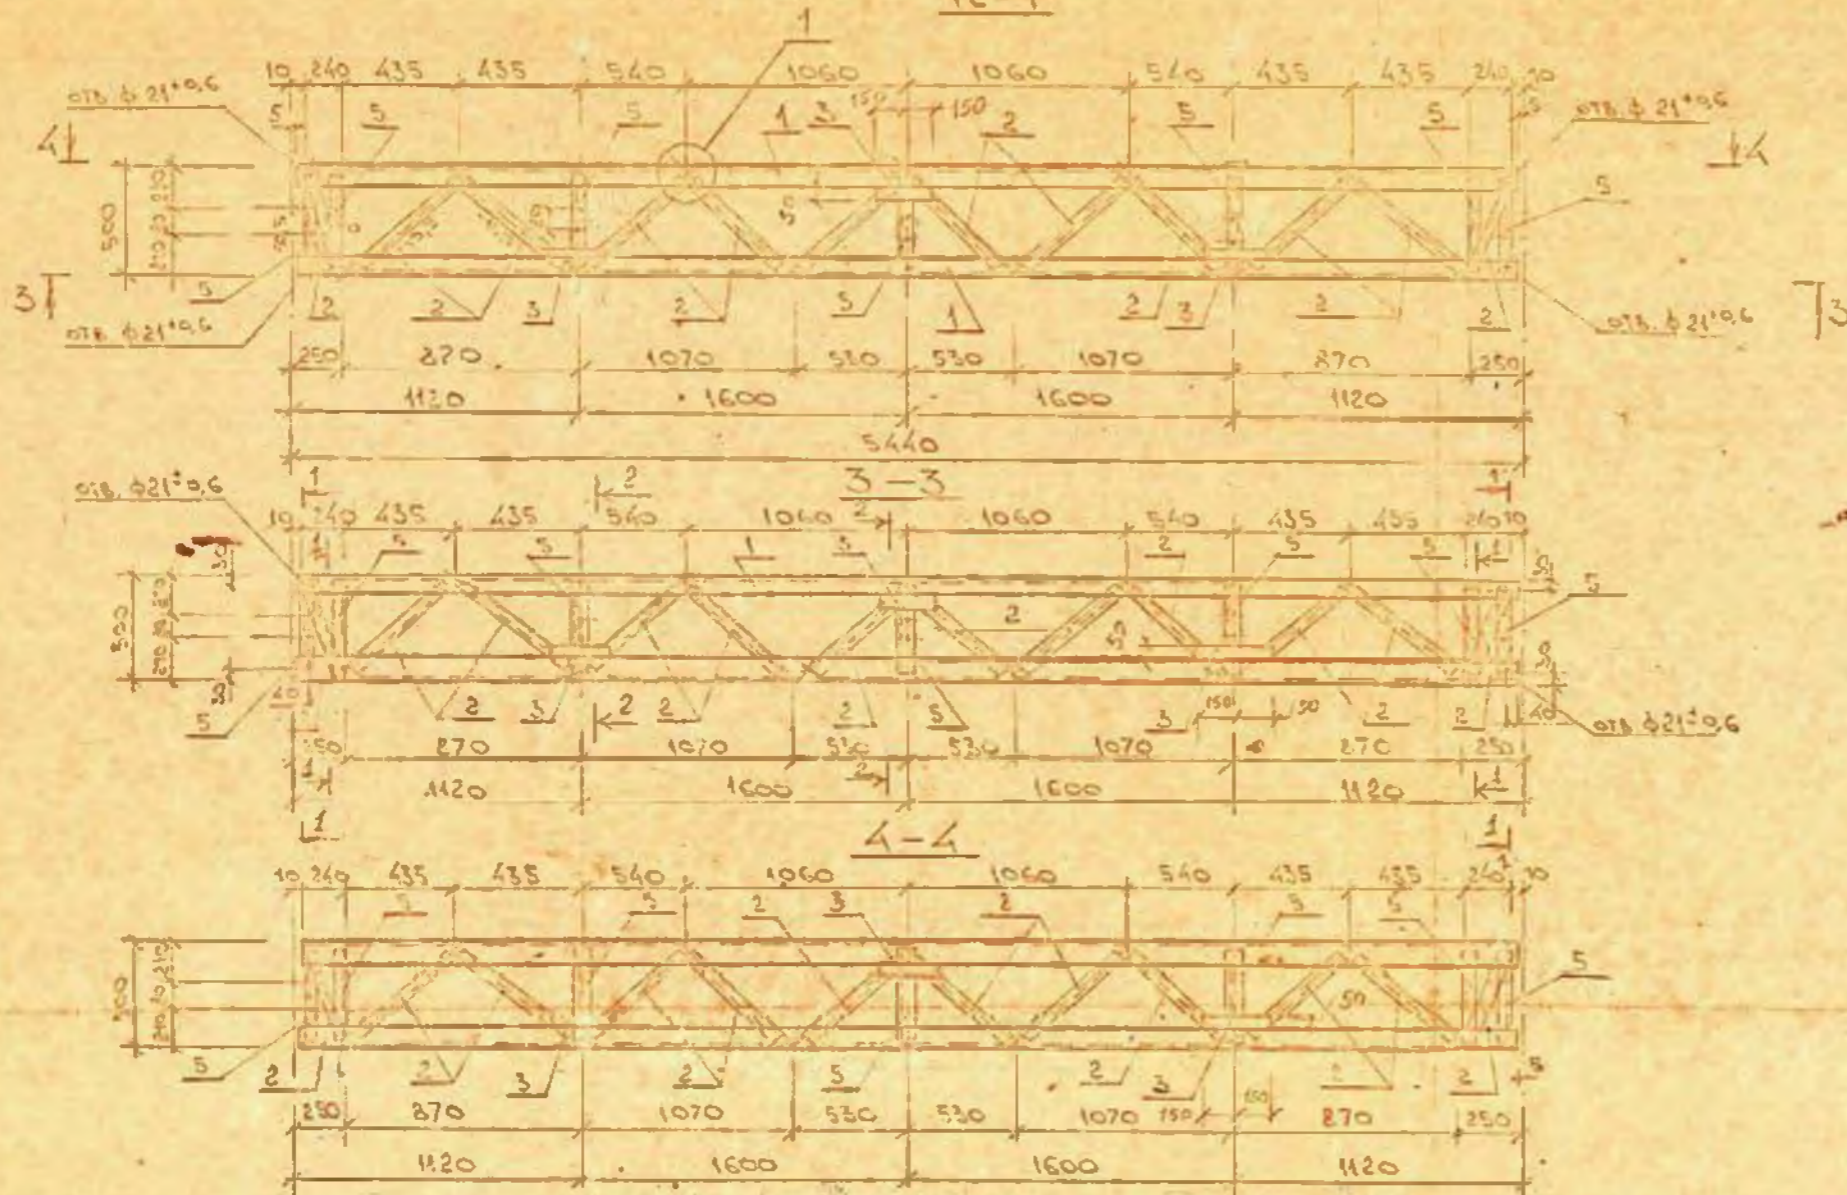 1
10 240 435 435 540 1060 1060 540 435 435 240 10
отв. ф 21+0,6
отв. ф 21+0,6
5 5 5 1 3 150 150 2 5 5 5
4 4
500
50
5
3 3
5 2 2 3 2 5 1 2 3 2 2
отв. ф 21+0,6
отв. ф 21+0,6
250 870 1070 530 530 1070 870 250
1120 1600 1600 1120
5440
отв. ф 21+0,6
1 2 3-3 1
10 240 435 435 540 1060 2 1060 540 435 435 240 10
1 5 5 1 3 2 5 5 1
30 30
500
5
2
50
30 30
5 2 3 2 2 2 5 3 150 2 2 40
отв. ф 21+0,6
250 870 1070 530 530 1070 870 250
1120 1600 2 1600 1120 1
1 1
4-4
10 240 435 435 540 1060 1060 540 435 435 240 10
5 5 2 3 2 5 5
500
5
50
5 2 2 3 2 5 2 3 2 2 5
250 870 1070 530 530 1070 150 150 870 250
1120 1600 1600 1120